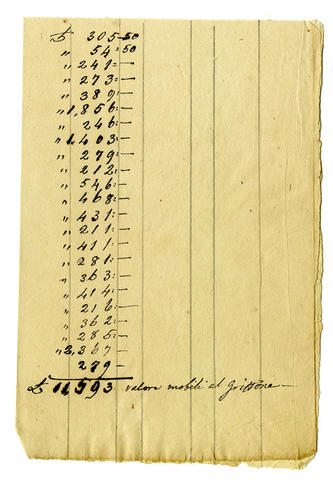 ₶ 305-50
" 54-50
" 241=—
" 273=—
" 389=—
" 1,856=—
" 246=—
" 1,403=—
" 279=—
" 212=—
" 546=—
" 468=—
" 431=—
" 211=—
" 411=—
" 281=—
" 363=—
" 414=—
" 216=—
" 362=—
" 285=—
" 2,367—
279—
₶ 11,593 valore mobili al Grifone—